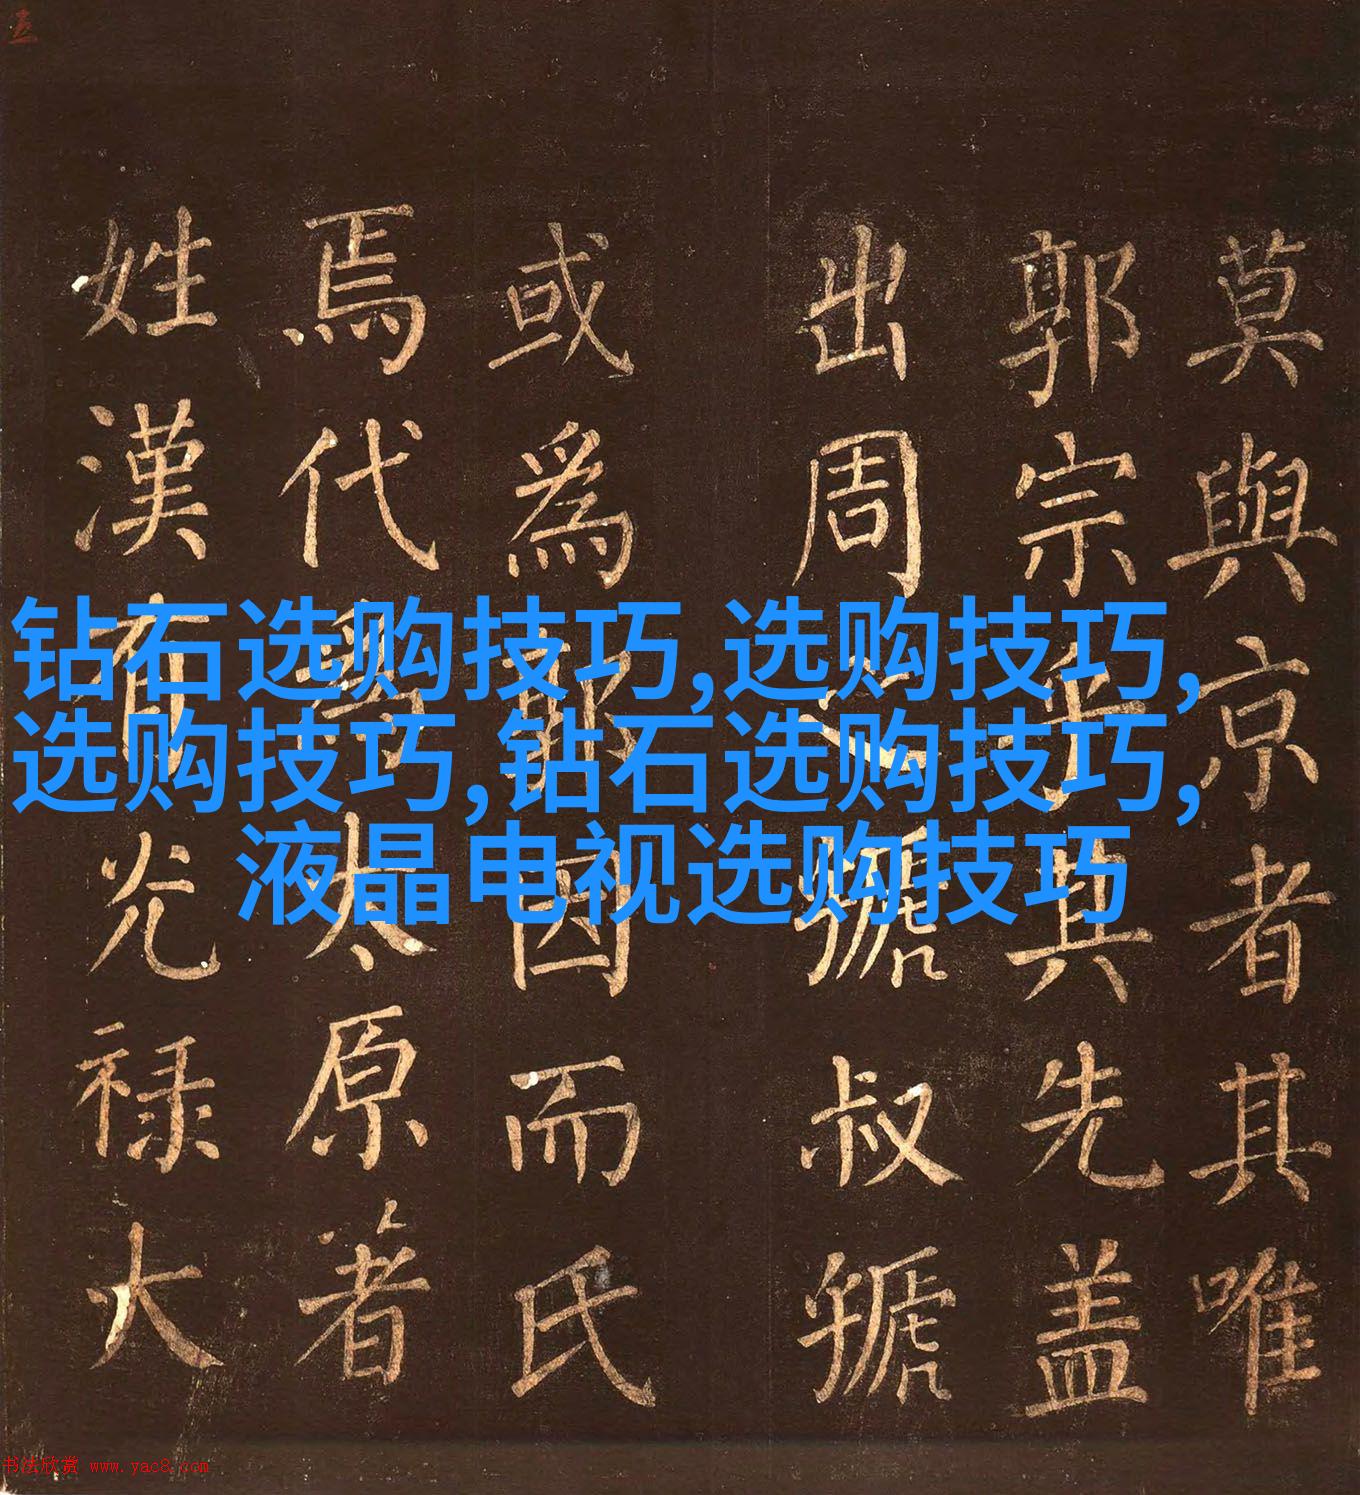 莫與京者其唯
郭宗乎其先盖
出周之虢叔虢
或為郭因而氏
焉代為太原著
姓漢有光禄大
钻石选购技巧,选购技巧,
选购技巧,钻石选购技巧,
液晶电视选购技巧
书法欣赏 www.yac8.com